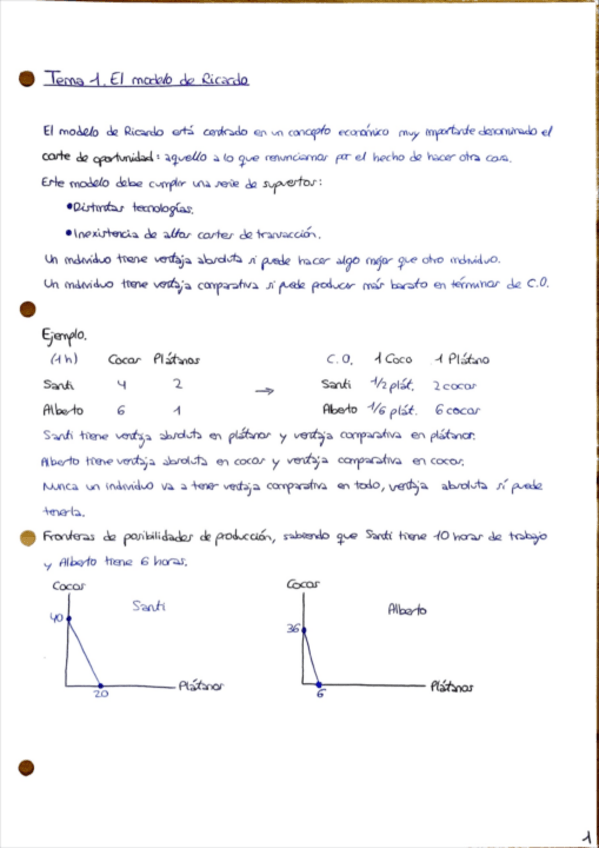 Tema 1. El modelo de Ricardo
El modelo de Ricardo está centrado en un concepto económico muy importante denominado el
coste de oportunidad: aquello a lo que renunciamos por el hecho de hacer otra cosa.
Este modelo debe cumplir una serie de supuestos:
•Distintas tecnologías.
•Inexistencia de altos costes de transacción.
Un individuo tiene ventaja absoluta si puede hacer algo mejor que otro individuo.
Un individuo tiene ventaja comparativa si puede producir más barato en términos de C.O.
Ejemplo.
(1h) Cocos Plátanos C.O. 1 Coco 1 Plátano
Santi 4 2 → Santi 1/2 plát. 2 cocos
Alberto 6 1 Alberto 1/6 plát. 6 cocos
Santi tiene ventaja absoluta en plátanos y ventaja comparativa en plátanos.
Alberto tiene ventaja absoluta en cocos y ventaja comparativa en cocos.
Nunca un individuo va a tener ventaja comparativa en todo, ventaja absoluta sí puede
tenerla.
Fronteras de posibilidades de producción, sabiendo que Santi tiene 10 horas de trabajo
y Alberto tiene 6 horas.
Cocos Cocos
Santi Alberto
40 36
Plátanos Plátanos
20 6
1